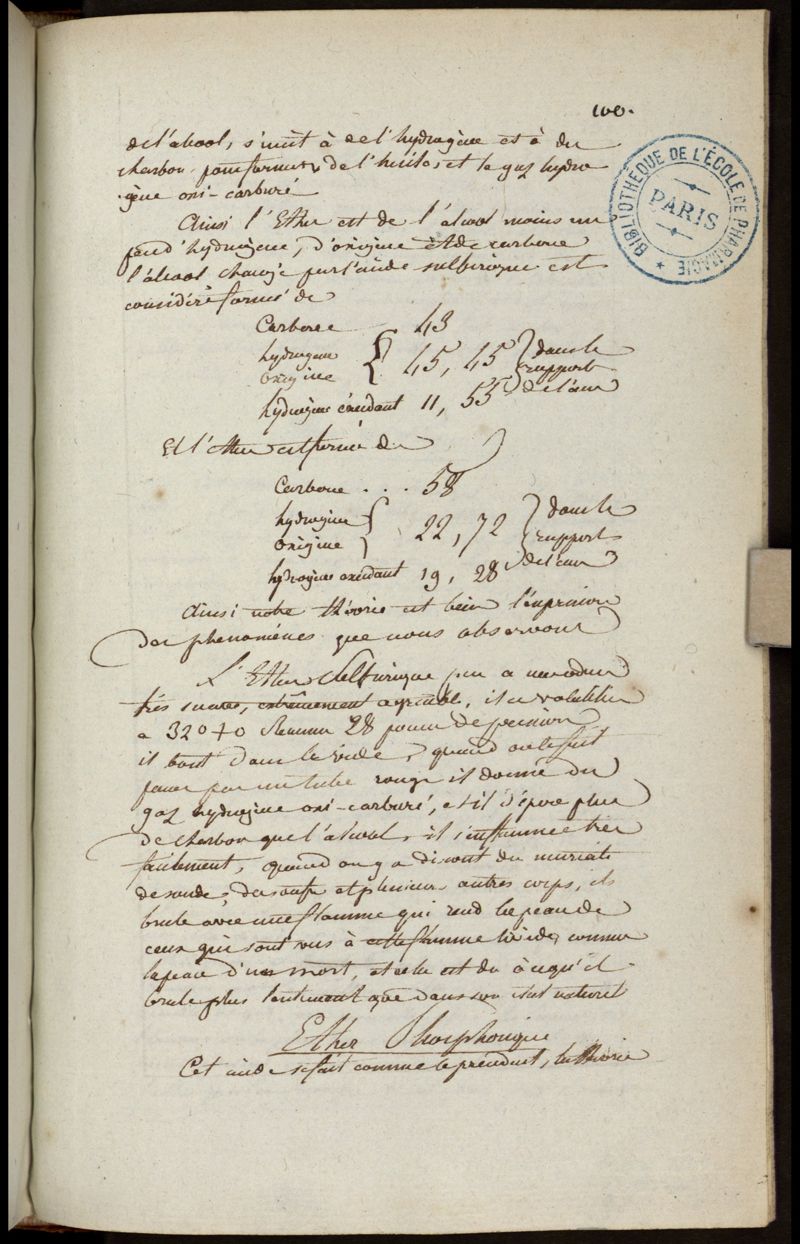 100.
BIBLIOTHÈQUE DE L'ÉCOLE DE PHARMACIE
PARIS
de l'alcool, s'unit à de l'hydrogène et à du
charbon pour former de l'huile, et le gaz hydro
gène oxi-carburé
Ainsi l'Ether est de l'alcool moins un
peu d'hydrogène, d'oxigène et de carbone
l'alcool changé par l'acide sulfurique est
considéré formé de
Carbone 43
hydrogène
oxigine } 45, 45 } dans le rapport de l'eau
hydrogène excédant 11, 55
Et l'ether est formé de
Carbone . . . 58
hydrogine
oxigine } 22, 72 } dans le rapport de l'eau
hydrogène excédant 19, 28
Ainsi notre théorie est bien l'expression
des phenomènes que nous observons
L'Ether Sulfurique pur a une odeur
très suave, extrêmement agréable, il se volatilise
a 32° + 0 Reaumur 28 pouces de pression
il bout dans le vide, quand on le fait
passer par un tube rouge il donne du
gaz hydrogène oxi-carburé, et il dépose plus
de charbon que l'alcool, il s'enflamme très
facilement, quand on y a dissout du muriate
de soude, du soufre et plusieurs autres corps, il
brule avec une flamme qui rend la peau de
ceux qui sont vus à cette flamme livide, comme
la peau d'un mort, et cela est du à ce qu'il
brule plus lentement que dans son état naturel
Ether Phosphorique
Cet acide se fait comme le précédent, la théorie